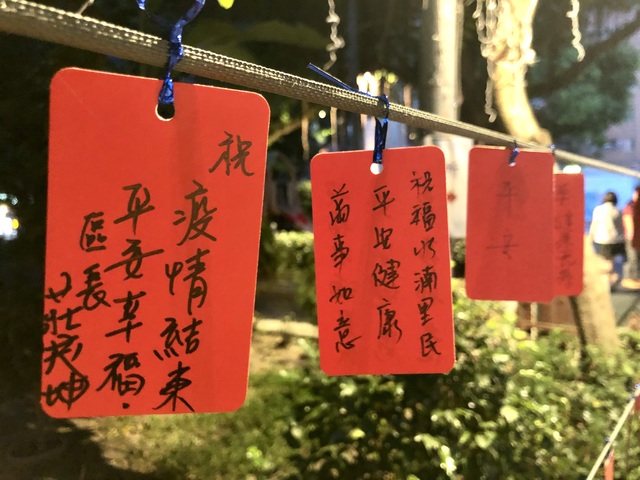 祝
疫情結束
平安幸福.
區長
祝福水湳里民
平安健康
萬事如意
平安